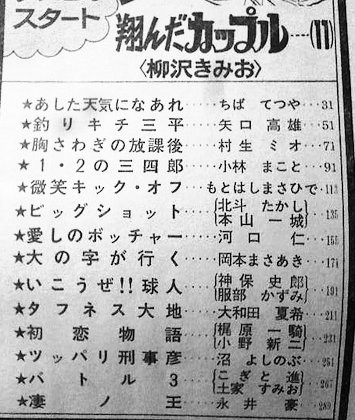 スタート
翔んだカップル…(11)
〈柳沢きみお〉
★あした天気になあれ……ちば てつや…31
★釣りキチ三平……矢口高雄…51
★胸さわぎの放課後……村生ミオ…71
★1・2の三四郎……小林まこと…91
★微笑キック・オフ……もとはしまさひで…113
★ビッグショット……{北斗 たかし 本山一城}…135
★愛しのボッチャー……河口仁…155
★大の字が行く……岡本まさあき…171
★いこうぜ!!球人……{神保史郎 服部かずみ}…191
★タフネス大地……大和田夏希…211
★初恋物語……{梶原一騎 小野新二}…231
★ツッパリ刑事彦……沼よしのぶ…251
★バトル3……{こぎと進 土家すみお}…267
★凄ノ王……永井豪…289